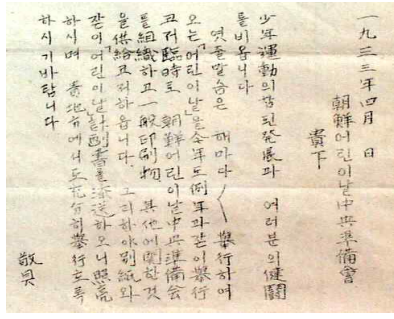 一九三三年四月 日
朝鮮어린이날中央準備會
貴下
少年運動의꾸준한發展과 여러분의健鬪
를비옵니다
엿줄말슴은 해마다〱 擧行하여
오는「어린이날」을今年도例年과같이擧行
코저臨時로 朝鮮어린이날中央準備会
를組織하고一般印刷物 其他에関한것
을供給코저하옵니다. 그리하야別紙와
같이「어린이날」計劃書를添送하오니照亮
하시며 貴地方에서도充分히擧行토록
하시기바랍니다
敬具